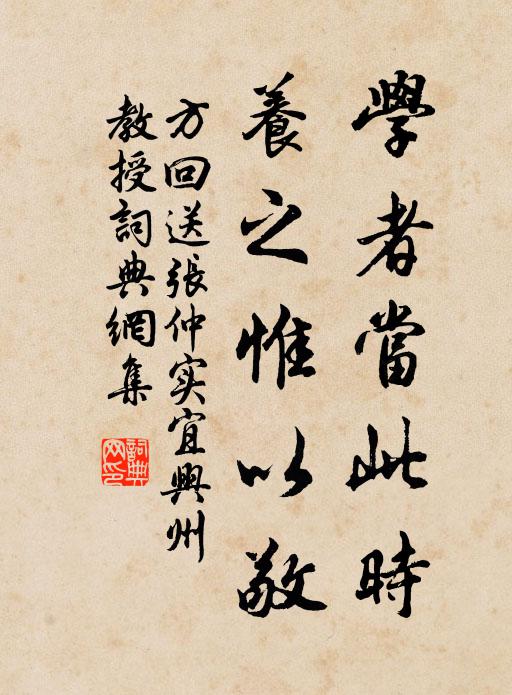 學者當此時
養之惟以敬
方回送張仲实宜興州
教授詞典網集
詞典网印